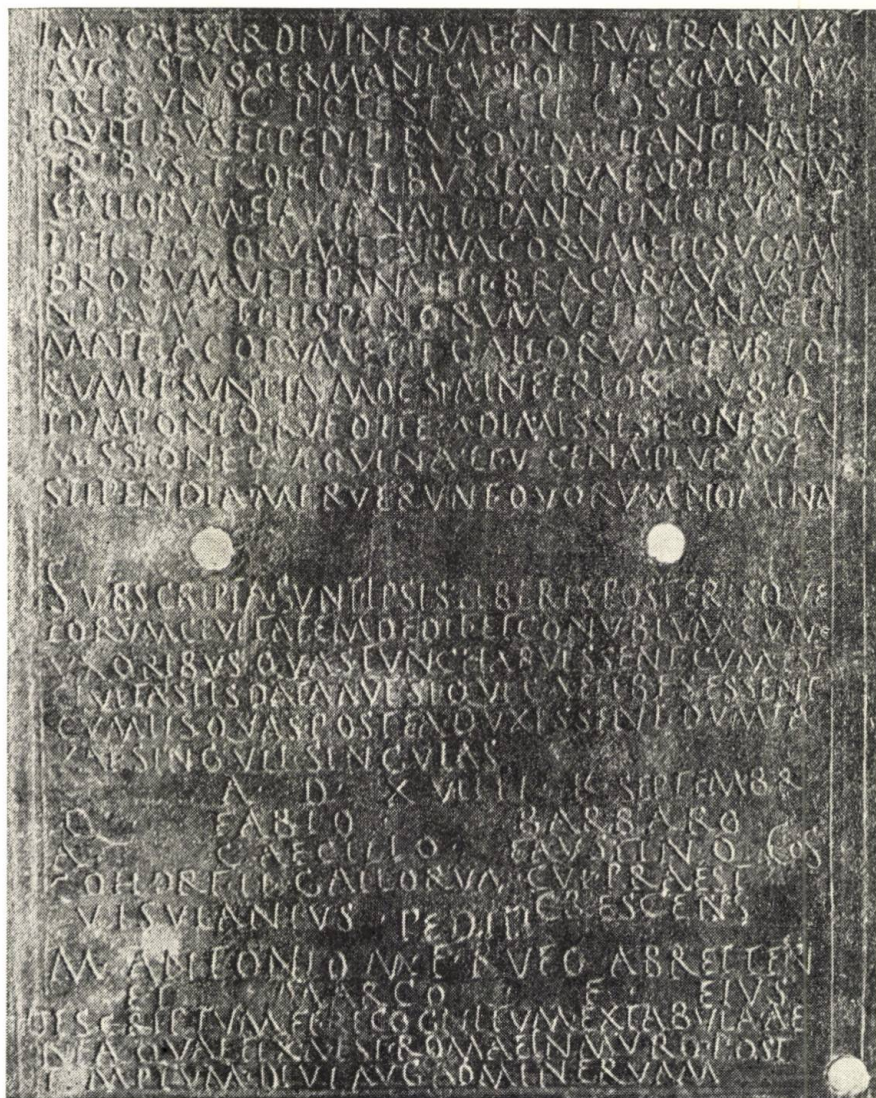 IMP CAESAR DIVI NERVAE F NERVA TRAIANVS
AVGVSTVS GERMANICVS PONTIFEX MAXIMVS
TRIBVNIC POTESTAT III COS II P P
EQVITIBVS ET PEDITIBVS QVI MILITANT IN ALIS
TRIBVS ET COHORTIBVS SEX QVAE APPELLANTVR
GALLORVM FLAVIANA ET I PANNONIORVM ET
II HISPANORVM ET ARVACORVM ET I SVGAM
BRORVM VETERANA ET I BRACARAVGVSTA
NORVM ET I HISPANORVM VETERANA ET II
MATTIACORVM ET II GALLORVM ET VBIO
RVM ET SVNT IN MOESIA INFERIORE SVB Q
POMPONIO RVFO ITEM DIMISSIS HONESTA
MISSIONE QVI QVINA ET VICENA PLVRAVE
STIPENDIA MERVERVNT QVORVM NOMINA
SVBSCRIPTA SVNT IPSIS LIBERIS POSTERISQVE
EORVM CIVITATEM DEDIT ET CONVBIVM CVM
VXORIBVS QVAS TVNC HABVISSENT CVM EST
CIVITAS IIS DATA AVT SI QVI CAELIBES ESSENT
CVM IIS QVAS POSTEA DVXISSENT DVMTA
XAT SINGVLI SINGVLAS
A D XVIIII K SEPTEMBR
Q FABIO BARBARO
A CAECILIO FAVSTINO COS
COHORT II GALLORVM CVI PRAEST
VISVLANIVS CRESCENS
PEDITI
M ANTONIO M F RVFO ABRETTEN
ET MARCO F EIVS
DESCRIPTVM ET RECOGNITVM EX TABVLA AE
NEA QVAE FIXA EST ROMAE IN MVRO POST
TEMPLVM DIVI AVG AD MINERVAM